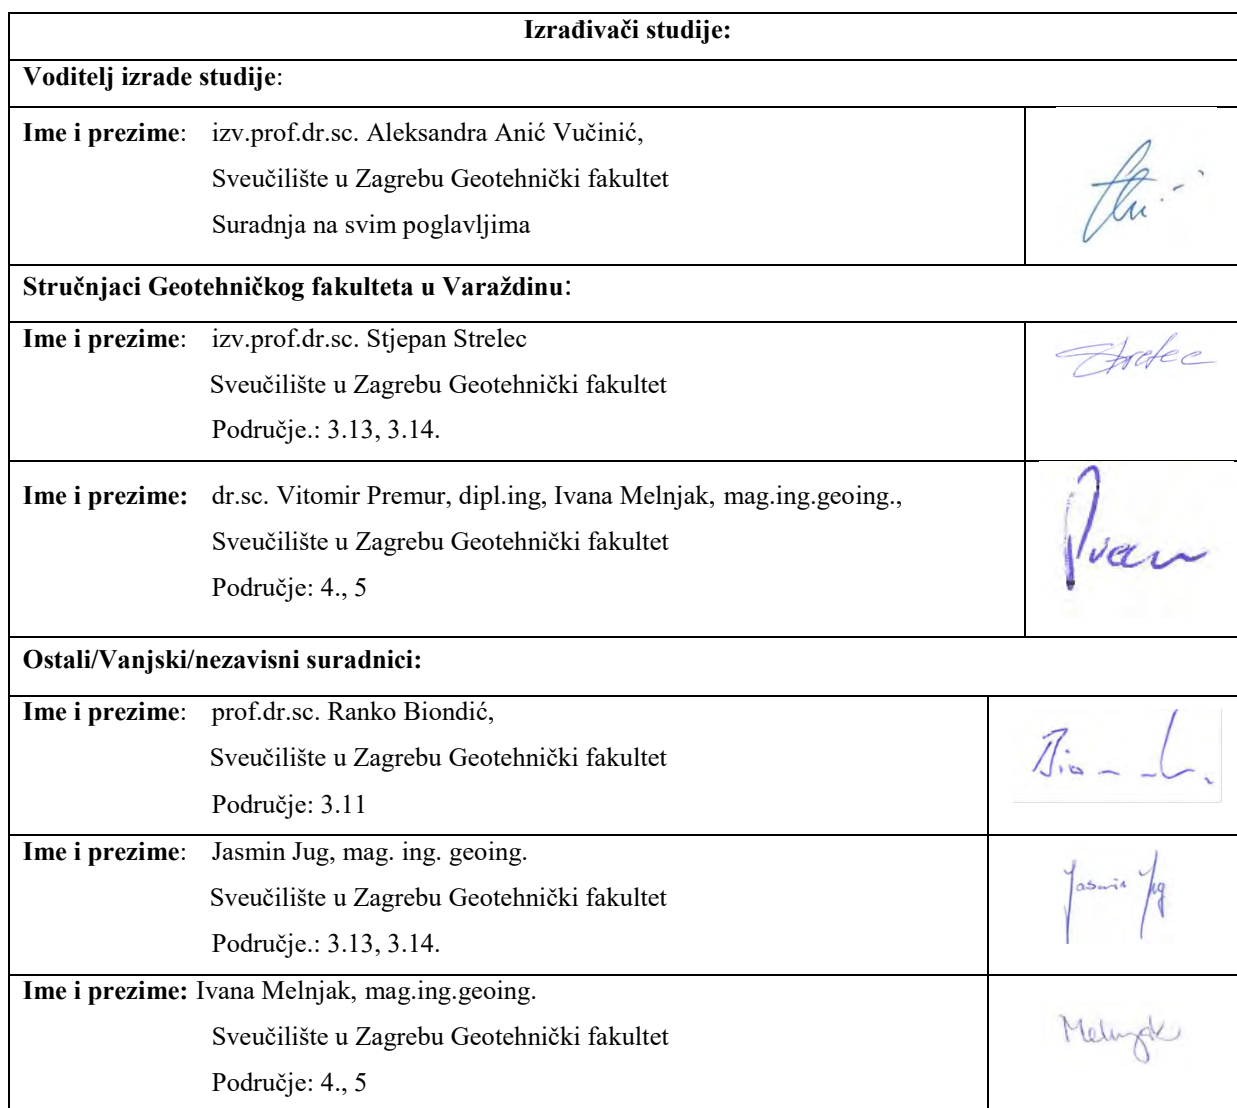 Izrađivači studije:
Voditelj izrade studije:
Ime i prezime: izv.prof.dr.sc. Aleksandra Anić Vučinić,
Sveučilište u Zagrebu Geotehnički fakultet
Suradnja na svim poglavljima
Stručnjaci Geotehničkog fakulteta u Varaždinu:
Ime i prezime: izv.prof.dr.sc. Stjepan Strelec
Strelec
Sveučilište u Zagrebu Geotehnički fakultet
Područje.: 3.13, 3.14.
Ime i prezime: dr.sc. Vitomir Premur, dipl.ing, Ivana Melnjak, mag.ing.geoing.,
Sveučilište u Zagrebu Geotehnički fakultet
Područje: 4., 5
Ostali/Vanjski/nezavisni suradnici:
Ime i prezime: prof.dr.sc. Ranko Biondić,
Sveučilište u Zagrebu Geotehnički fakultet
Područje: 3.11
Ime i prezime: Jasmin Jug, mag. ing. geoing.
Jasmin Jug
Sveučilište u Zagrebu Geotehnički fakultet
Područje.: 3.13, 3.14.
Ime i prezime: Ivana Melnjak, mag.ing.geoing.
Melnjak
Sveučilište u Zagrebu Geotehnički fakultet
Područje: 4., 5